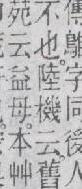 字同後人
也。陸機云舊
苑云益母。本艸